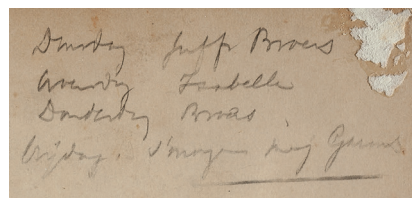 Dinsdag Juffr Broers
Woensdag Isabelle
Donderdag Broers
Vrijdag. 's morgens mej